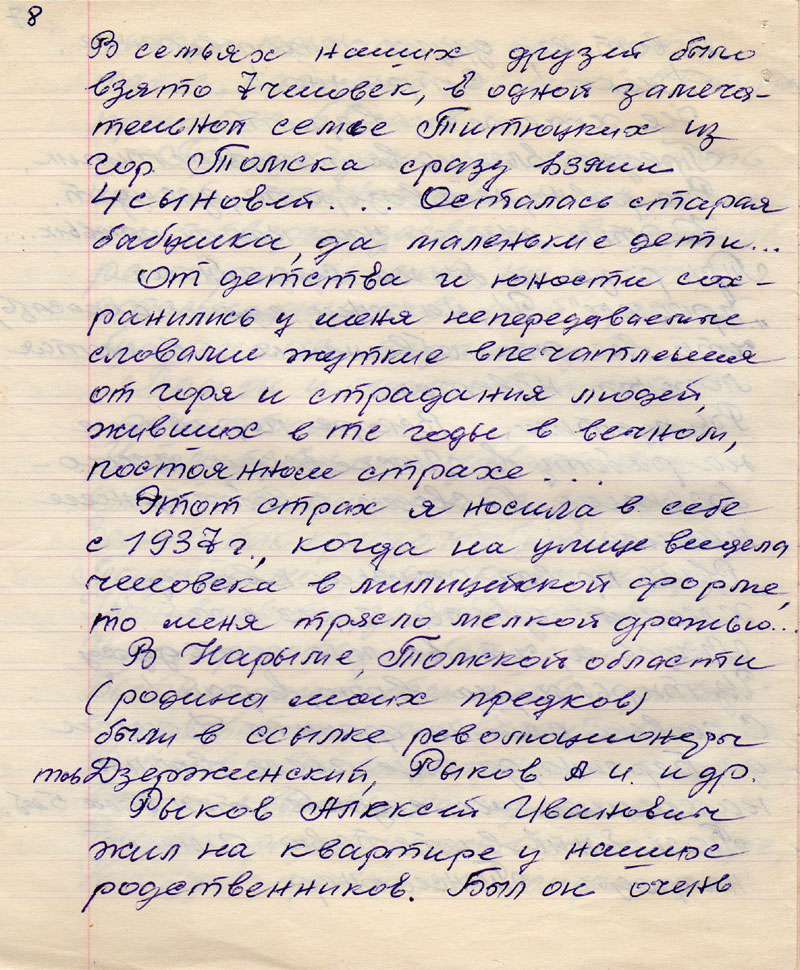 8
В семьях наших друзей было
взято 7 человек, в одной замеча-
тельной семье Титюцких из
гор. Томска сразу взяли
4 сыновей... Осталась старая
бабушка, да маленькие дети...
От детства и юности сох-
ранились у меня непередаваемые
словами жуткие впечатления
от горя и страдания людей,
живших в те годы в вечном,
постоянном страхе....
Этот страх я носила в себе
с 1937 г., когда на улице видела
человека в милицейской форме,
то меня трясло мелкой дрожью...
В Нарыме, Томской области
(родина моих предков)
были в ссылке революционеры
тов Дзержинский, Рыков А И. и др.
Рыков Алексей Иванович
жил на квартире у наших
родственников. Был он очень